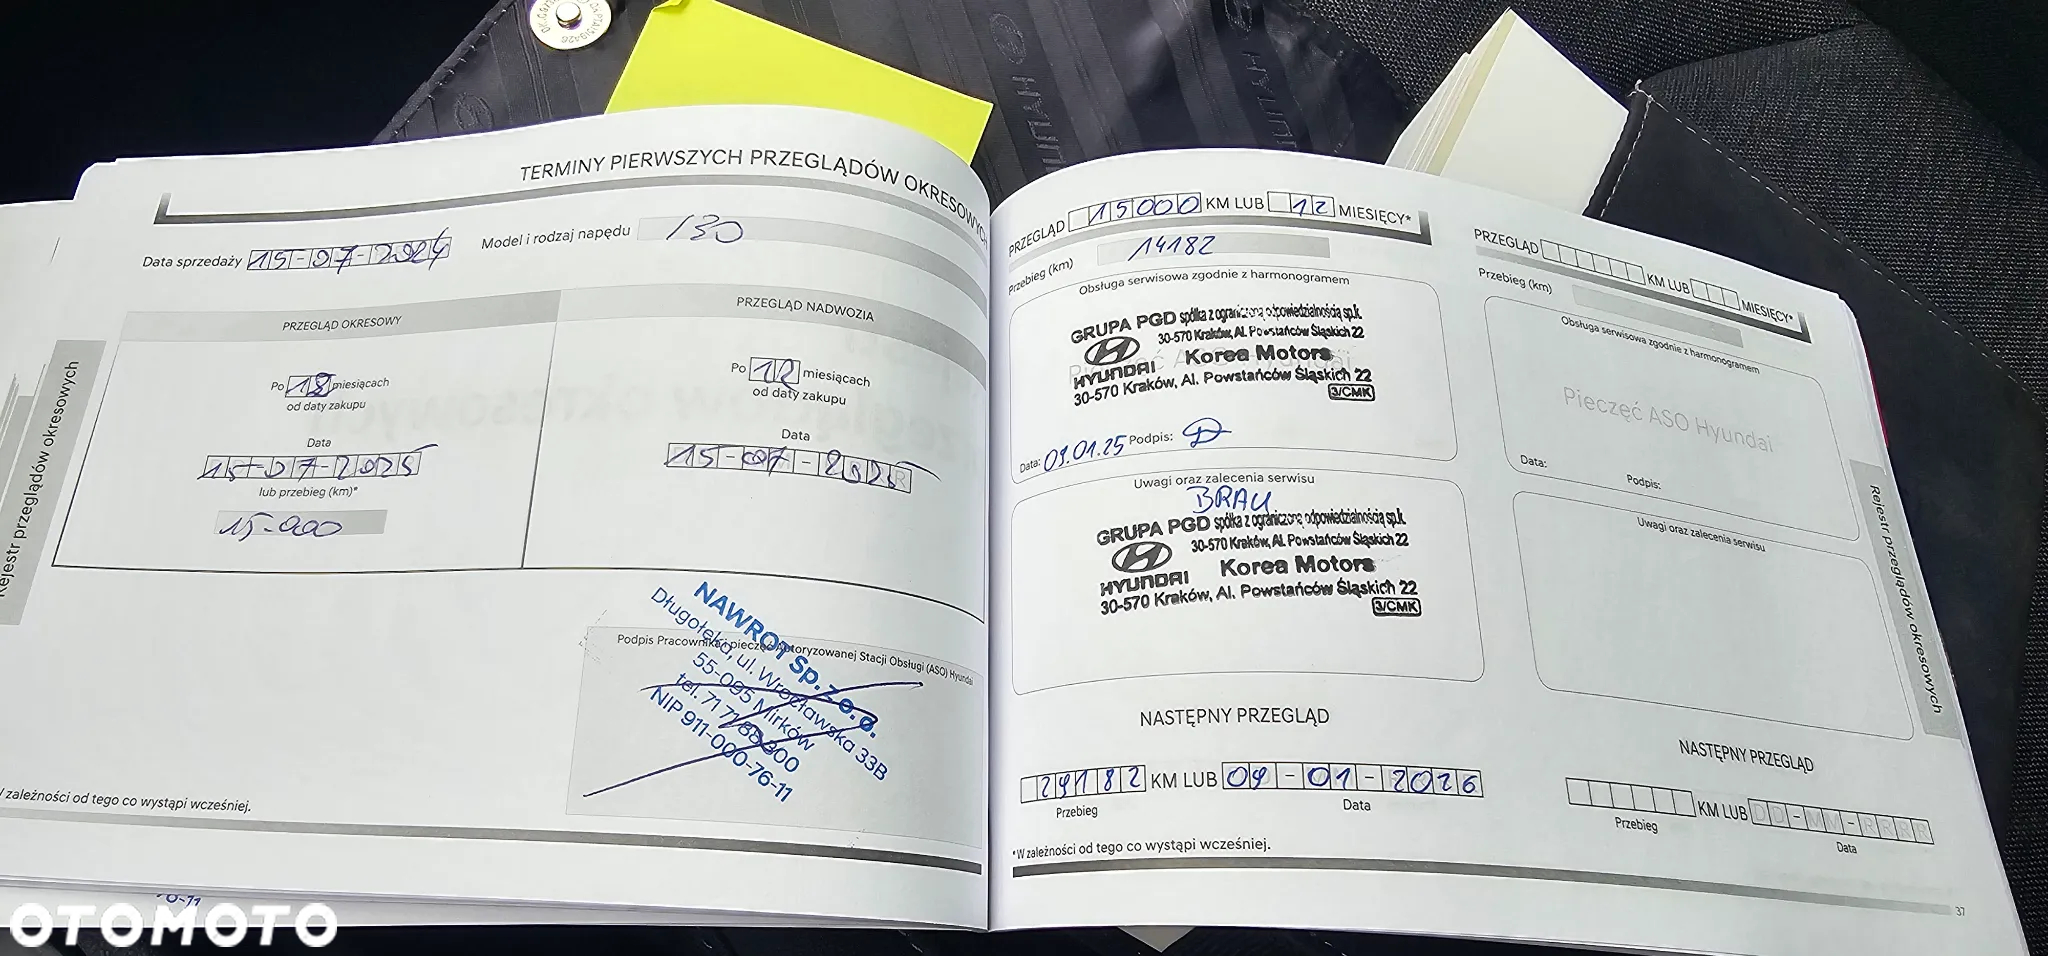 TERMINY PIERWSZYCH PRZEGLĄDÓW OKRESOWYCH
Data sprzedaży 15-07-2024 Model i rodzaj napędu I30
PRZEGLĄD OKRESOWY
Po 12 miesiącach
od daty zakupu
Data
15-07-2025
lub przebieg (km)*
15-000
PRZEGLĄD NADWOZIA
Po 12 miesiącach
od daty zakupu
Data
15-07-2025
Podpis Pracownika i pieczęć Autoryzowanej Stacji Obsługi (ASO) Hyundai
NAWROT Sp. z o.o.
Długołęka, ul. Wrocławska 33B
55-095 Mirków
tel. 71 71 88 300
NIP 911-000-76-11
W zależności od tego co wystąpi wcześniej.
Rejestr przeglądów okresowych
PRZEGLĄD 15000 KM LUB 12 MIESIĘCY*
Przebieg (km) 14182
Obsługa serwisowa zgodnie z harmonogramem
GRUPA PGD spółka z ograniczoną odpowiedzialnością sp.k.
30-570 Kraków, Al. Powstańców Śląskich 22
Korea Motors
HYUNDAI
30-570 Kraków, Al. Powstańców Śląskich 22
3/CMK
Data: 09.01.25 Podpis:
Uwagi oraz zalecenia serwisu
BRAK
GRUPA PGD spółka z ograniczoną odpowiedzialnością sp.k.
30-570 Kraków, Al. Powstańców Śląskich 22
Korea Motors
HYUNDAI
30-570 Kraków, Al. Powstańców Śląskich 22
3/CMK
NASTĘPNY PRZEGLĄD
29182 KM LUB 09-01-2026
Przebieg Data
*W zależności od tego co wystąpi wcześniej.
PRZEGLĄD KM LUB MIESIĘCY*
Przebieg (km)
Obsługa serwisowa zgodnie z harmonogramem
Pieczęć ASO Hyundai
Data: Podpis:
Uwagi oraz zalecenia serwisu
NASTĘPNY PRZEGLĄD
KM LUB DD-MM-RRRR
Przebieg Data
Rejestr przeglądów okresowych
37
HYUNDAI
OTOMOTO